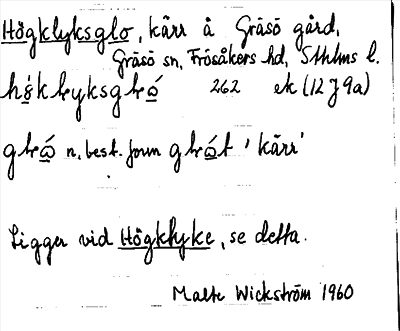 Högklyksglo, kärr å Gräsö gård,
Gräsö sn, Frösåkers hd, Sthlms l.
262 ek (12 J 9a)
n, best. form 'kärr'
Ligger vid Högklyke, se detta.
Malte Wickström 1960